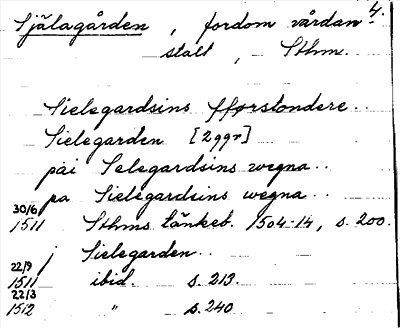 4.
Själagården, fordom vårdan-
stalt, Sthm.
Sielegardsins fførstondere..
Sielegarden [2 ggr]
pai Selegardsins wegna..
pa Sielegardsins wegna..
30/6
1511 Sthms tänkeb. 1504-14, s. 200.
j Sielegarden..
22/9
1511 ibid. s. 213.
22/3
1512 " s. 240